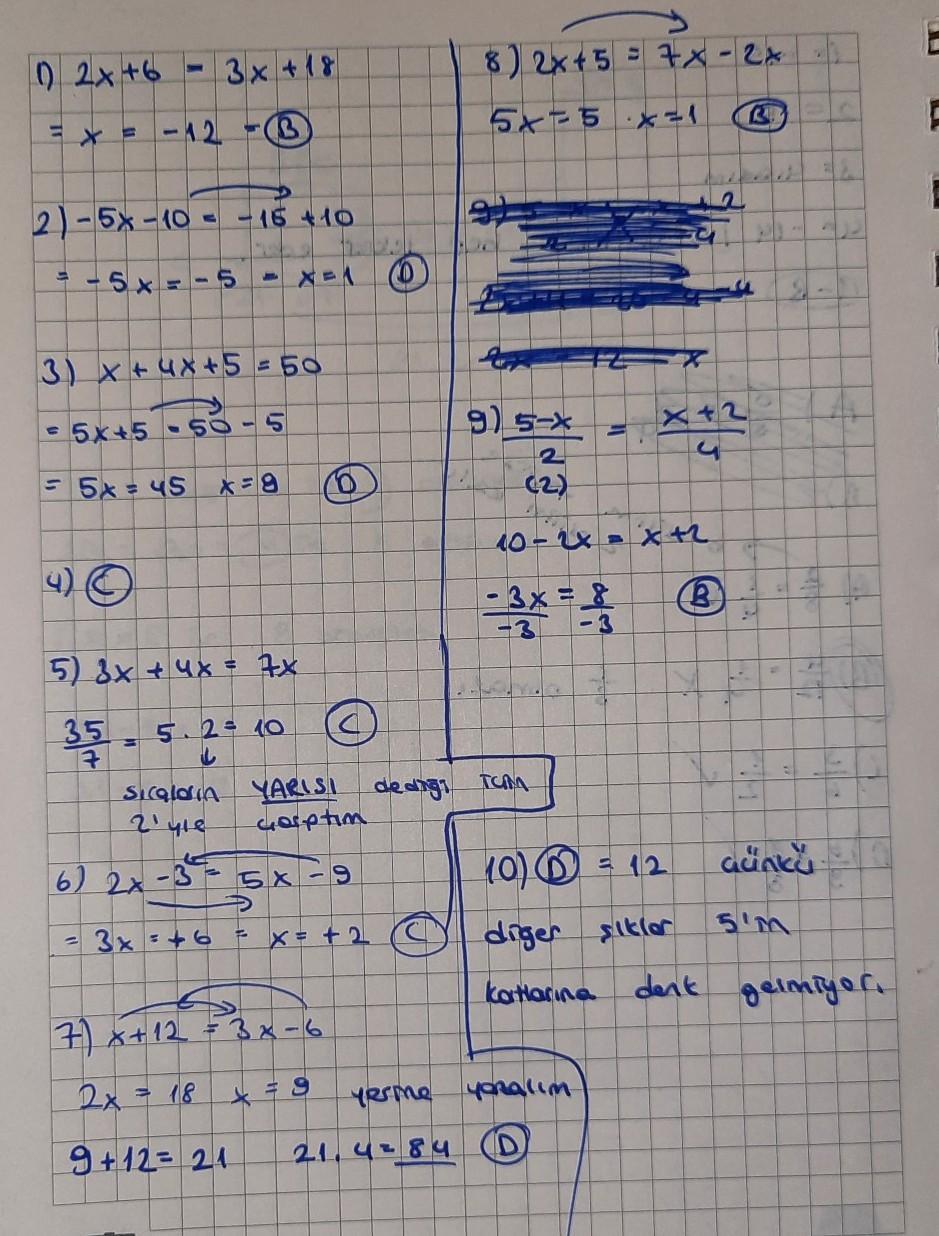 1) 2x+6 = 3x+18
= x = -12 - B
2) -5x-10 = -15+10
= -5x = -5 - x=1 D
3) x+4x+5=50
= 5x+5 = 50-5
= 5x=45 x=9 D
4) C
5) 3x+4x = 7x
35/7 = 5.2=10 C
YARISI dediği için
2'yle çarptım
6) 2x-3 = 5x-9
= 3x=+6 = x=+2 C
7) x+12 = 3x-6
2x = 18 x = 9 yerine yazalım
9+12=21 21.4=84 D
8) 2x+5 = 7x-2x
5x=5 x=1 B
9) 5-x/2 = x+2/4
(2)
10-2x = x+2
-3x/-3 = 8/-3 B
10) D = 12 çünkü
diğer şıklar 5'in
katlarına denk gelmiyor.